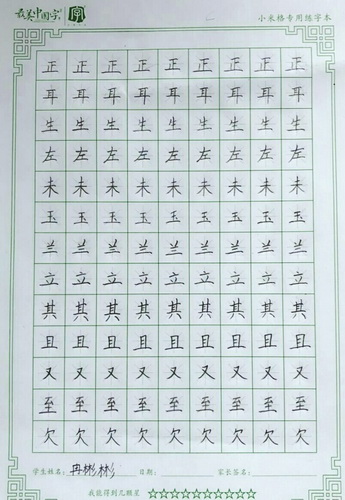 最美中国字 字 小米格专用练字本
正 正 正 正 正 正 正 正 正
耳 耳 耳 耳 耳 耳 耳 耳 耳
生 生 生 生 生 生 生 生 生
左 左 左 左 左 左 左 左 左
未 未 未 未 未 未 未 未 未
玉 玉 玉 玉 玉 玉 玉 玉 玉
兰 兰 兰 兰 兰 兰 兰 兰 兰
立 立 立 立 立 立 立 立 立
其 其 其 其 其 其 其 其 其
且 且 且 且 且 且 且 且 且
又 又 又 又 又 又 又 又 又
至 至 至 至 至 至 至 至 至
欠 欠 欠 欠 欠 欠 欠 欠 欠
学生姓名：冉彬彬 日期： 家长签名：
我能得到几颗星 ☆☆☆☆☆☆☆☆☆☆